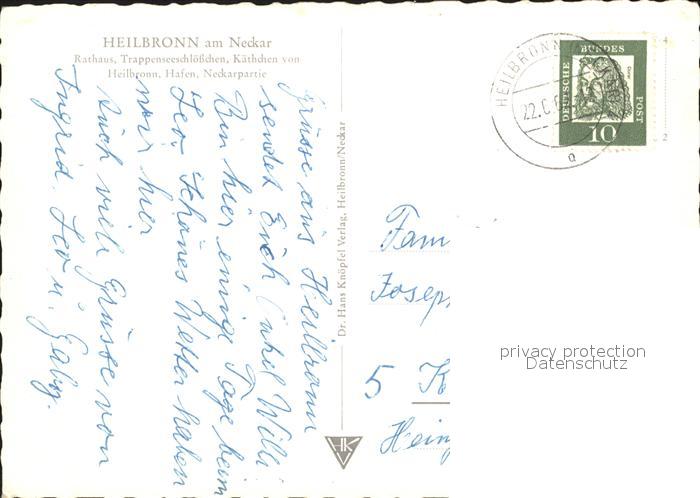 HEILBRONN am Neckar
Rathaus, Trappenseeschlößchen, Käthchen von
Heilbronn, Hafen, Neckarpartie
Grüsse aus Heilbronn
sendet Euch Onkel Willi
Bin hier einige Tage beim
Leo. Schönes Wetter haben
wir hier
Auch viele Grüsse von
Ingrid. Leo u. Gaby.
Dr. Hans Knöpfel Verlag, Heilbronn/Neckar
HK
HEILBRONN
22.
a
DEUTSCHE
BUNDES
POST
10
4
2
Fam
Josep
5 K
Hein
privacy protection
Datenschutz